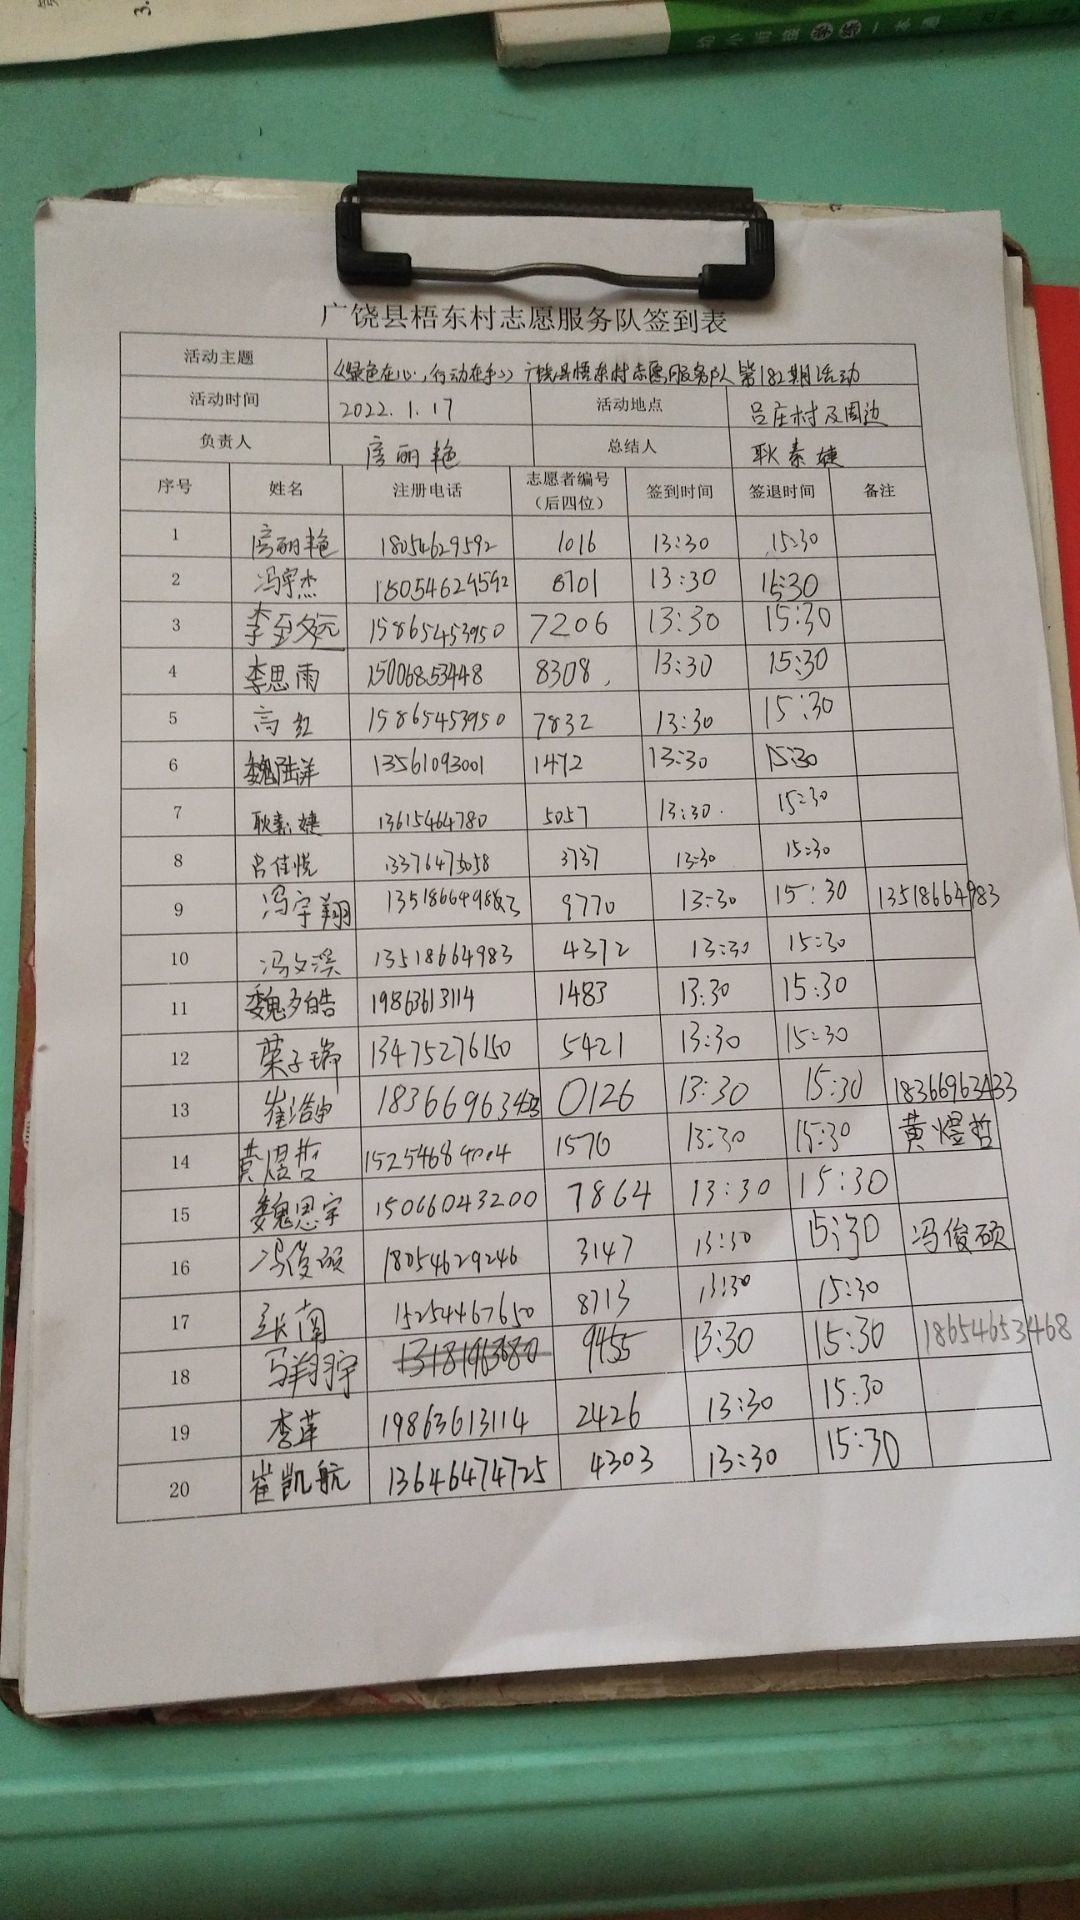 广饶县梧东村志愿服务队签到表
活动主题 《绿色在心,行动在手》广饶县梧东村志愿服务队第182期活动
活动时间 2022.1.17 活动地点 吕庄村及周边
负责人 房丽艳 总结人 耿素婕
序号 姓名 注册电话 志愿者编号(后四位) 签到时间 签退时间 备注
1 房丽艳 18054629592 1016 13:30 15:30
2 冯宇杰 18054629592 8701 13:30 15:30
3 李至多远 15865453950 7206 13:30 15:30
4 李思雨 15006853448 8308 13:30 15:30
5 高红 15865453950 7832 13:30 15:30
6 魏陆洋 13561093001 1472 13:30 15:30
7 耿素婕 13615464780 5057 13:30 15:30
8 吕佳悦 13376475058 3737 13:30 15:30
9 冯宇翔 9770 13:30 15:30 13518664983
10 冯文溪 13518664983 4372 13:30 15:30
11 魏多皓 19863613114 1483 13:30 15:30
12 荣子瑞 13475276150 5421 13:30 15:30
13 崔浩申 0126 13:30 15:30 18366963433
14 黄煜哲 1570 13:30 15:30 黄煜哲
15 魏思宇 15066043200 7864 13:30 15:30
16 冯俊硕 18054629246 3147 13:30 15:30 冯俊硕
17 南 15254467650 8713 13:30 15:30
18 马翔宇 13181963680 9455 13:30 15:30 18654653468
19 李苹 19863613114 2426 13:30 15:30
20 崔凯航 13646474725 4303 13:30 15:30